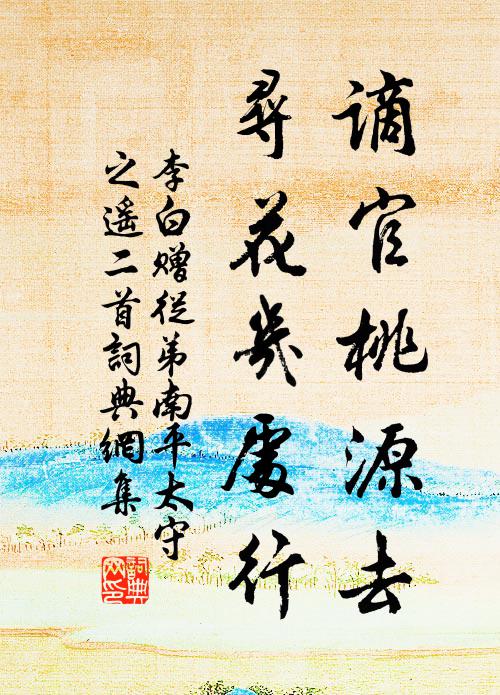 謫官桃源去
尋花幾處行
李白贈從弟南平太守
之遙二首詞典網集
詞典
网印